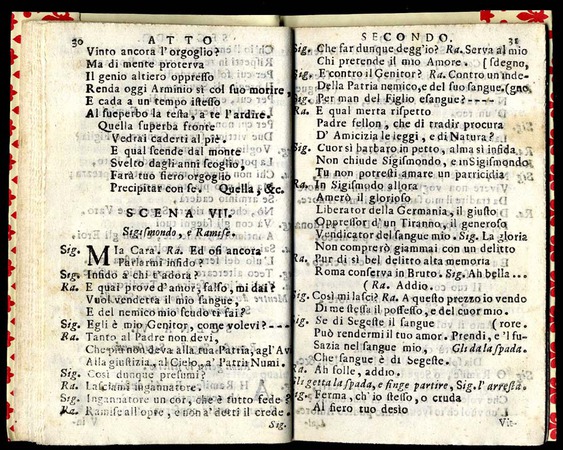 30 ATTO
Vinto ancora l'orgoglio?
Ma di mente proterva
Il genio altiero oppresso
Renda oggi Arminio sì col suo morire,
E cada a un tempo istesso
Al superbo la testa, a te l'ardire.
Quella superba fronte
Vedrai caderti al piè.
E qual scende dal monte
Svelto dagli anni scoglio,
Farà tuo fiero orgoglio
Precipitar con se. Quella, &c.
SCENA VII.
Sigismondo, e Ramise.
Sig. MIa Cara. Ra. Ed osi ancora
Parlarmi infido?
Sig. Infido a chi t'adora?
Ra. E qual prove d'amor, falso, mi dai?
Vuoi vendetta il mio sangue,
E del nemico mio scudo ti fai?
Sig. Egli è mio Genitor, come volevi?----
Ra. Tanto al Padre non devi,
Che più non deva alla tua Patria, agl'Avi
Alla giustizia, al Cielo, a' Patrii Numi.
Sig. Così dunque presumi?
Ra. Lasciami ingannatore.
Sig. Ingannatore un cor, che è tutto fede?
Ra. Ramise all'opre, e non a' detti il crede.
Sig.
SECONDO. 31
Sig. Che far dunque degg'io? Ra. Serva al mio
Chi pretende il mio Amore. (sdegno,
Sig. E contro il Genitor? Ra. Contro un'inde-
Della Patria nemico, e del suo sangue. (gno
Sig. Per man del Figlio esangue?----
Ra. E qual merta rispetto
Padre fellon, che di tradir procura
D' Amicizia le leggi, e di Natura?
Sig. Cuor sì barbaro in petto, alma sì infida
Non chiude Sigismondo, e in Sigismondo
Tu non potresti amare un parricidia
Ra. In Sigismodo allora
Amerò il glorioso
Liberator della Germania, il giusto
Oppressor d'un Tiranno, il generoso
Vendicator del sangue mio. Sig. La gloria
Non comprerò giammai con un delitto
Ra. Pur di sì bel delitto alta memoria
Roma conserva in Bruto. Sig. Ah bella...
(Ra. Addio.
Sig. Così mi lasci? Ra. A questo prezzo io vendo
Di me stessa il possesso, e del cuor mio.
Sig. Se di Segeste il sangue (rore.
Può rendermi il tuo amor. Prendi, e 'l fu-
Sazia nel sangue mio, Gli dà la spada.
Che sangue è di Segeste.
Ra. Ah folle, addio.
Gli getta la spada, e finge partire, Sig. l'arresta.
Sig. Ferma, ch'io stesso, o cruda
Al fiero tuo desio
Vit-